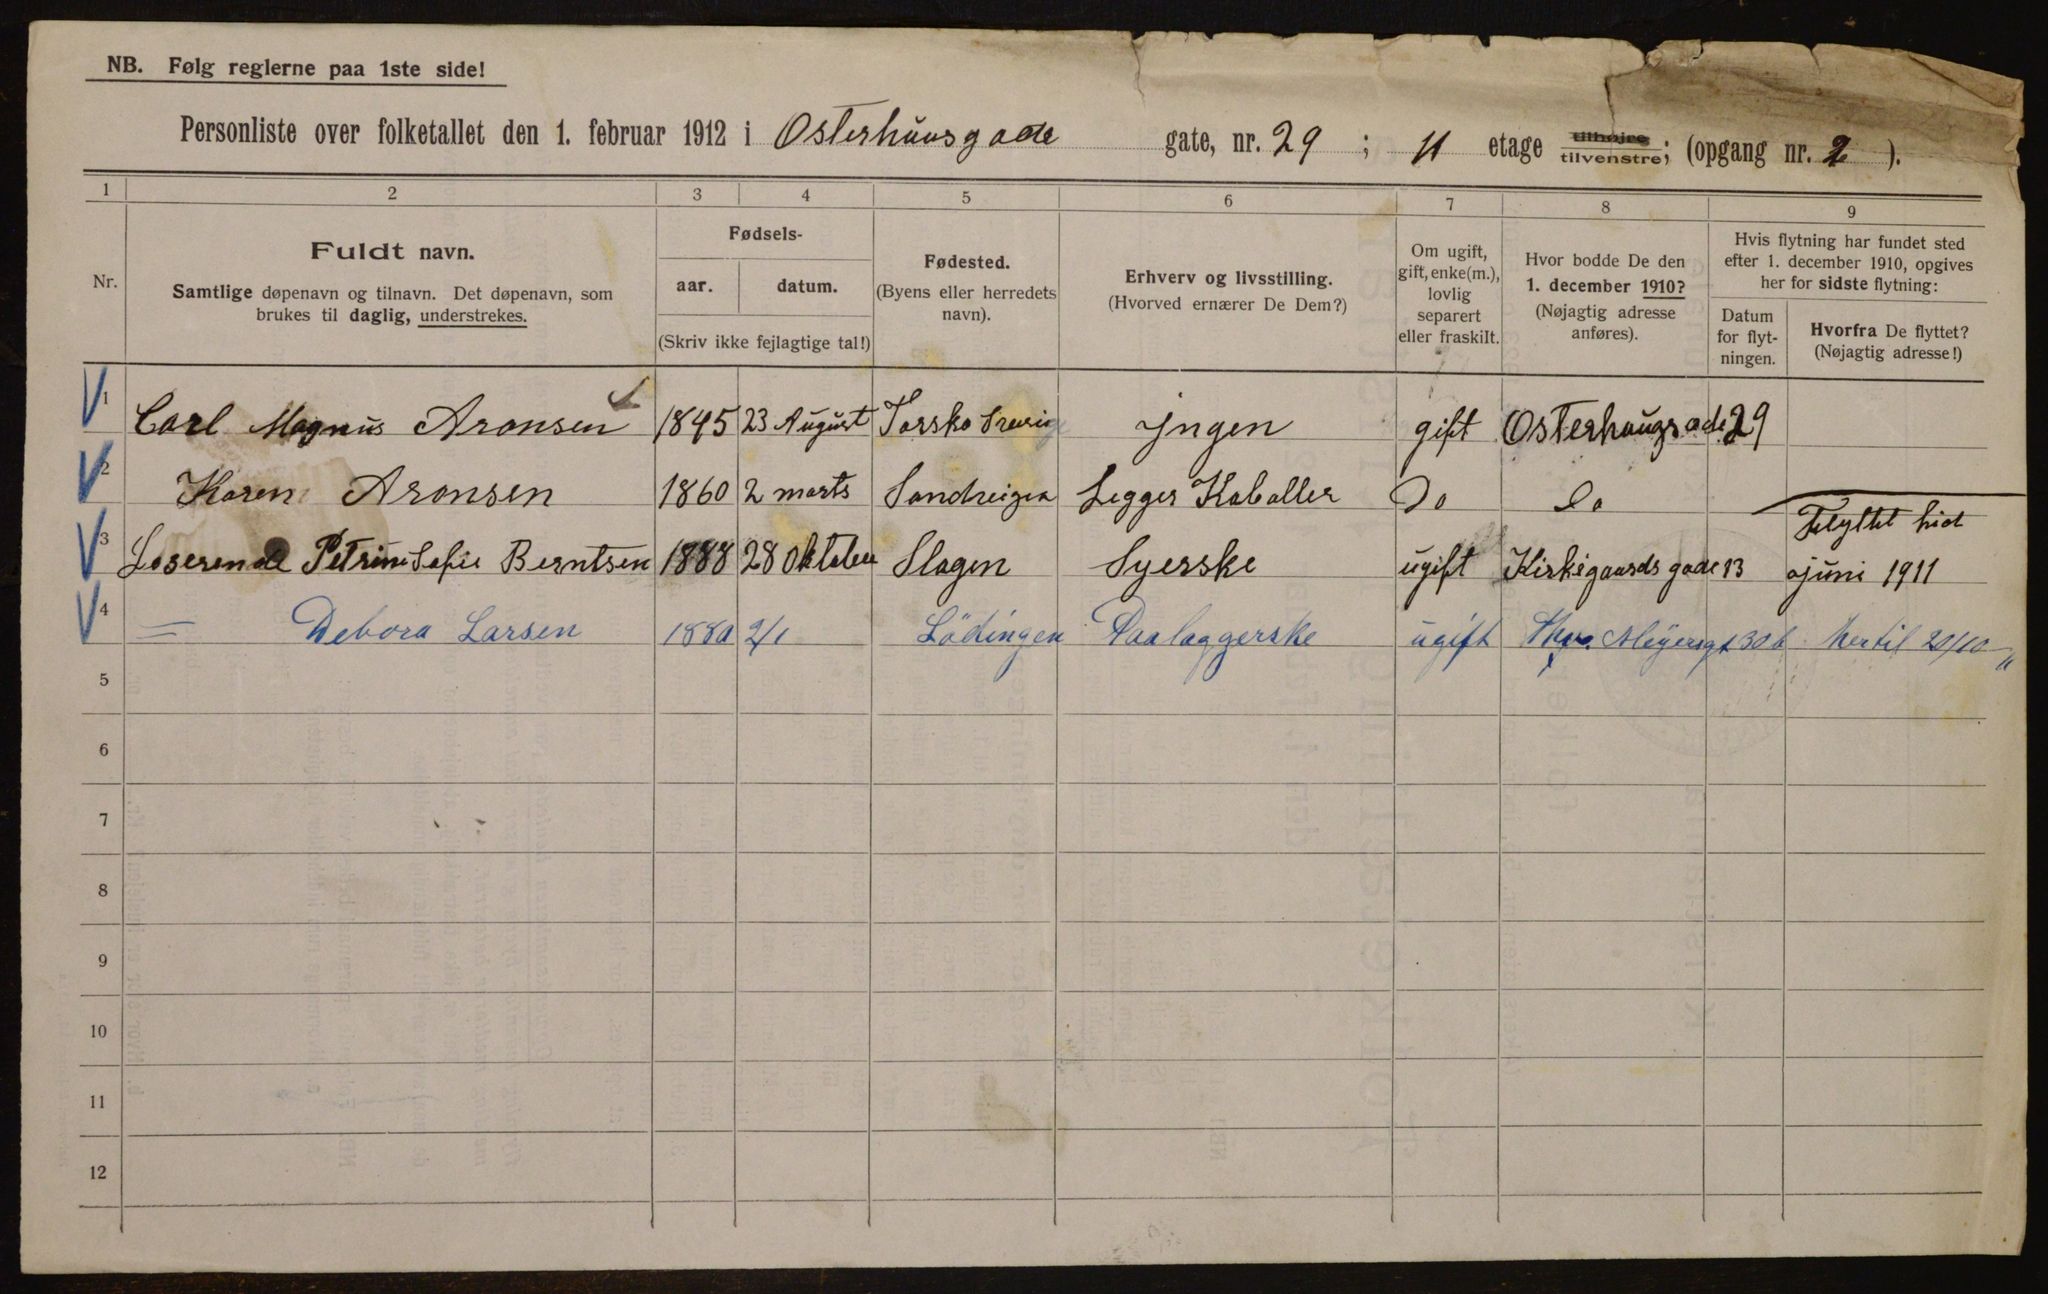 NB. Følg reglerne paa 1ste side!
Personliste over folketallet den 1. februar 1912 i Osterhuusgade gate, nr. 29 ; 11 etage tilhøjre tilvenstre; (opgang nr. 2 ).
1 2 3 4 5 6 7 8 9
Nr.
Fuldt navn.
Samtlige døpenavn og tilnavn. Det døpenavn, som
brukes til daglig, understrekes.
Fødsels-
aar. datum.
(Skriv ikke fejlagtige tal!)
Fødested.
(Byens eller herredets
navn).
Erhverv og livsstilling.
(Hvorved ernærer De Dem?)
Om ugift,
gift, enke(m.),
lovlig
separert
eller fraskilt.
Hvor bodde De den
1. december 1910?
(Nøjagtig adresse
anføres).
Hvis flytning har fundet sted
efter 1. december 1910, opgives
her for sidste flytning:
Datum
for flyt-
ningen.
Hvorfra De flyttet?
(Nøjagtig adresse!)
1 Carl Magnus Aronsen 1845 23 August Torsko Sverig Jngen gift Osterhaugsade 29
2 Karen Aronsen 1860 2 marts Legger Kaballer Do Do
3 Loserende Petrine Sofie Berntsen 1888 28 Oktober Slagen Syerske ugift Kirkegaards gade 13 hid juni 1911
4 = Debora Larsen 1880 2/1 Lödingen Paalaggerske ugift Meyersgt 30b Mertil 20/10
5
6
7
8
9
10
11
12